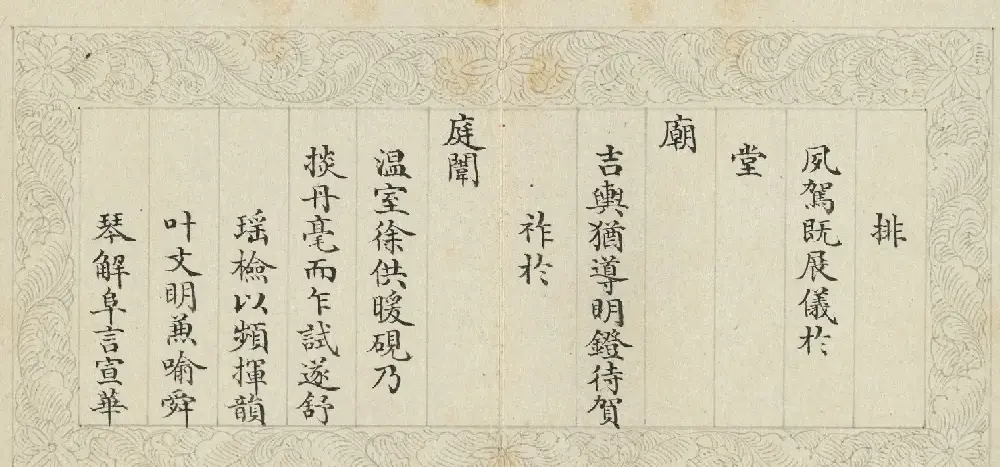 排
夙駕既展儀扵
堂
廟
吉輿猶導明鐙待賀
祚扵
庭闈
温室徐供暖硯乃
掞丹毫而乍試遂舒
瑶檢以頻揮韻
叶文明蕉喻舜
琴解阜言宣華